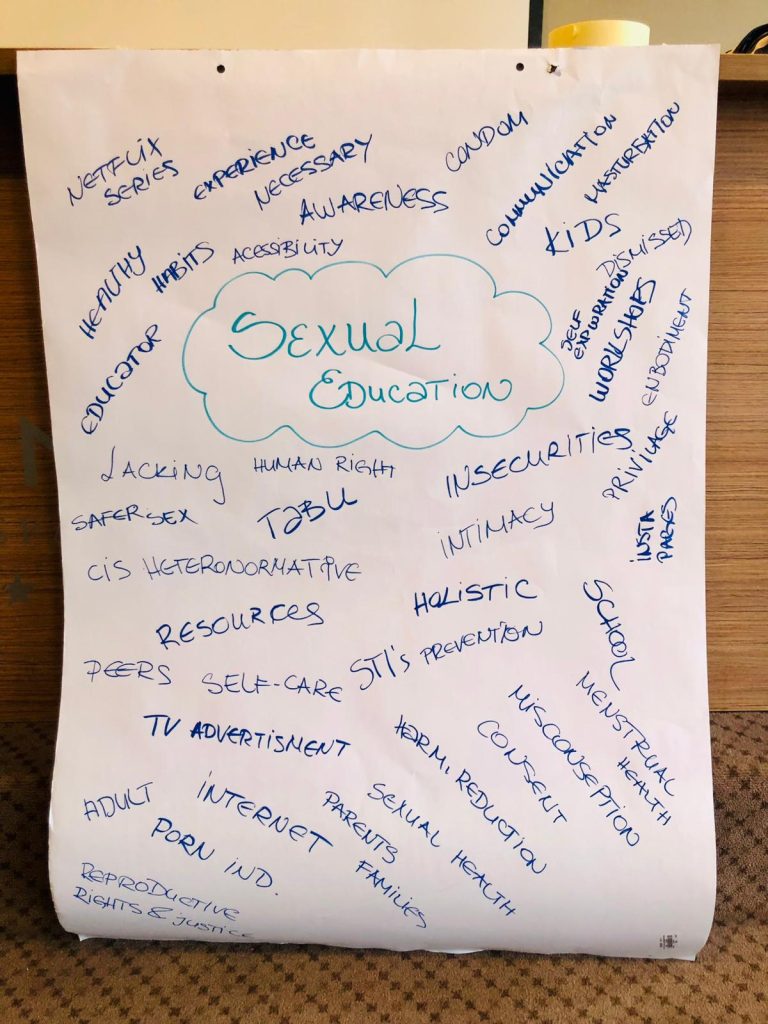 NETFLIX
SERIES
EXPERIENCE
NECESSARY
AWARENESS
CONDOM
COMMUNICATION
MASTURBATION
KIDS
DISMISSED
HEALTHY
HABITS
ACESSIBILITY
SELF
EXPLORATION
WORKSHOPS
ENBODIMENT
EDUCATOR
SEXUAL
EDUCATION
LACKING
HUMAN RIGHT
INSECURITIES
PRIVILAGE
SAFER SEX
TABU
INTIMACY
INSTA
PAGES
CIS HETERONORMATIVE
HOLISTIC
SCHOOL
RESOURCES
STI's PREVENTION
PEERS
SELF-CARE
MENSTRUAL
HEALTH
MISCONSEPTION
CONSENT
TV ADVERTISMENT
HARM, REDUCTION
ADULT
INTERNET
PARENTS
SEXUAL HEALTH
PORN IND.
FAMILIES
REPRODUCTIVE
RIGHTS & JUSTICE